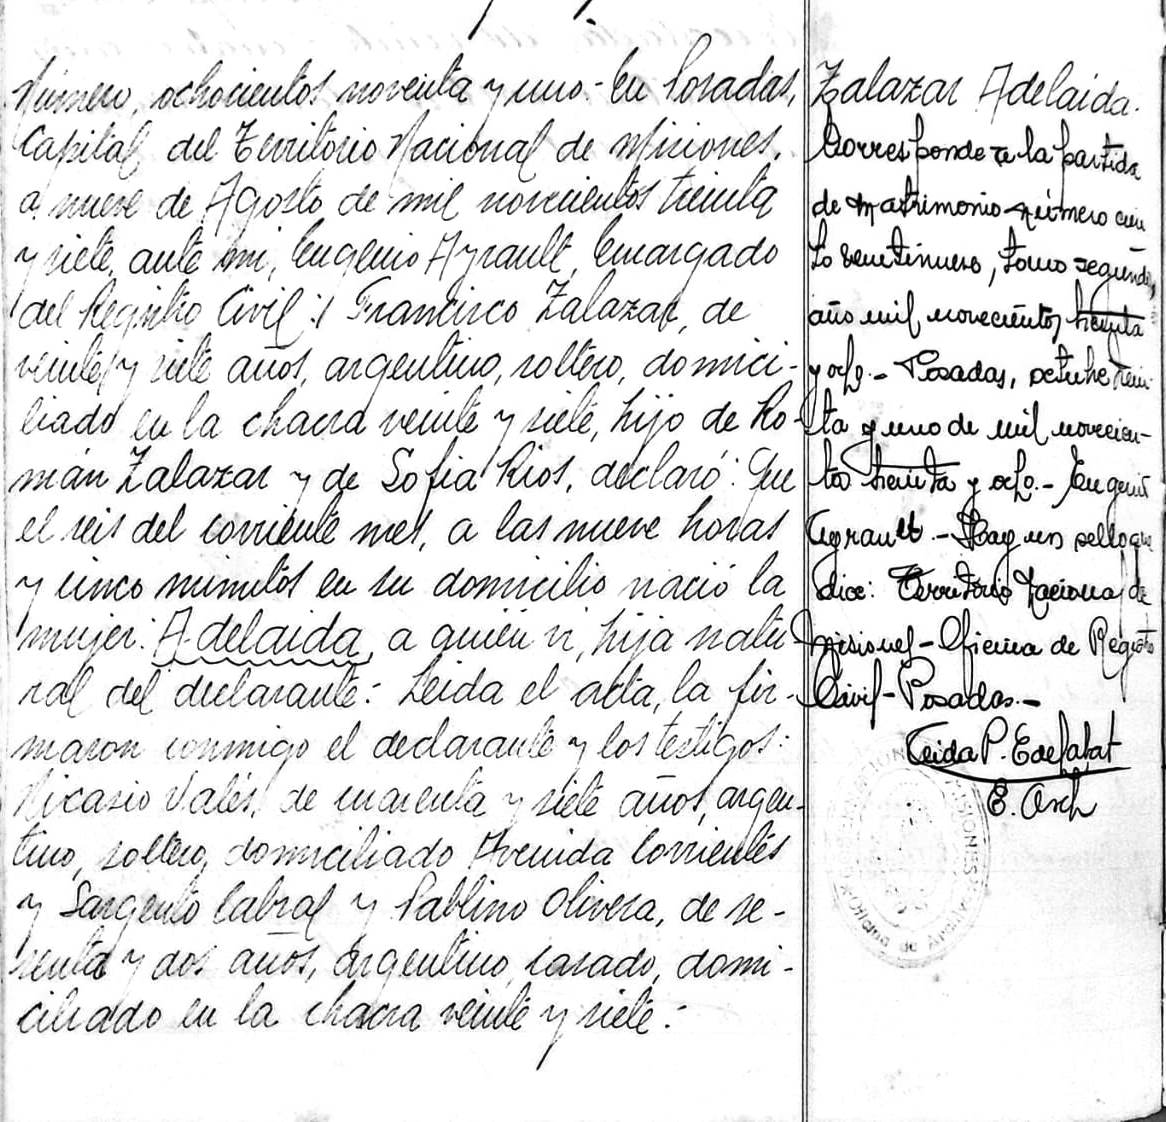 Número, ochocientos noventa y uno.- En Posadas,
Capital del Territorio Nacional de Misiones,
a nueve de Agosto de mil novecientos treinta
y siete, ante mi, Eugenio Ayrault, Encargado
del Registro Civil:/ Francisco Zalazar, de
veinte y siete años, argentino, soltero, domici-
liado en la chacra veinte y siete, hijo de Ro-
mán Zalazar y de Sofia Rios, declaró: Que
el seis del corriente mes, a las nueve horas
y cinco minutos en su domicilio nació la
mujer: Adelaida, a quién vi, hija natu-
ral del declarante: Leida el acta, la fir-
maron conmigo el declarante y los testigos:
Nicasio Valés, de cuarenta y siete años, argen-
tino, soltero, domiciliado Avenida Corrientes
y Sargento Cabral y Pablino Olivera, de se-
senta y dos años, argentino, casado, domi-
ciliado en la chacra veinte y siete:-
Zalazar Adelaida.
Corresponde a la partida
de matrimonio número cien
to veintinueve, tomo segundo,
año mil novecientos treinta
y ocho.- Posadas, octubre trein
ta y uno de mil novecien-
tos treinta y ocho.- Eugenio
Ayrault.- Hay un sello que
dice: Territorio Nacional de
Misiones- Oficina de Registro
Civil- Posadas.-
E. Osch